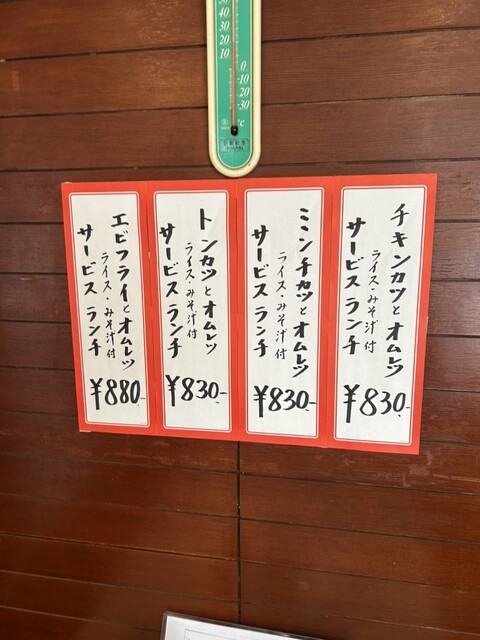 50
40
30
20
10
0
10
20
30
℃
チキンカツとオムレツ
ライス・みそ汁付
サービスランチ
¥830-
ミンチカツとオムレツ
ライス・みそ汁付
サービスランチ
¥830-
トンカツとオムレツ
ライス・みそ汁付
サービスランチ
¥830-
エビフライとオムレツ
ライス・みそ汁付
サービスランチ
¥880-